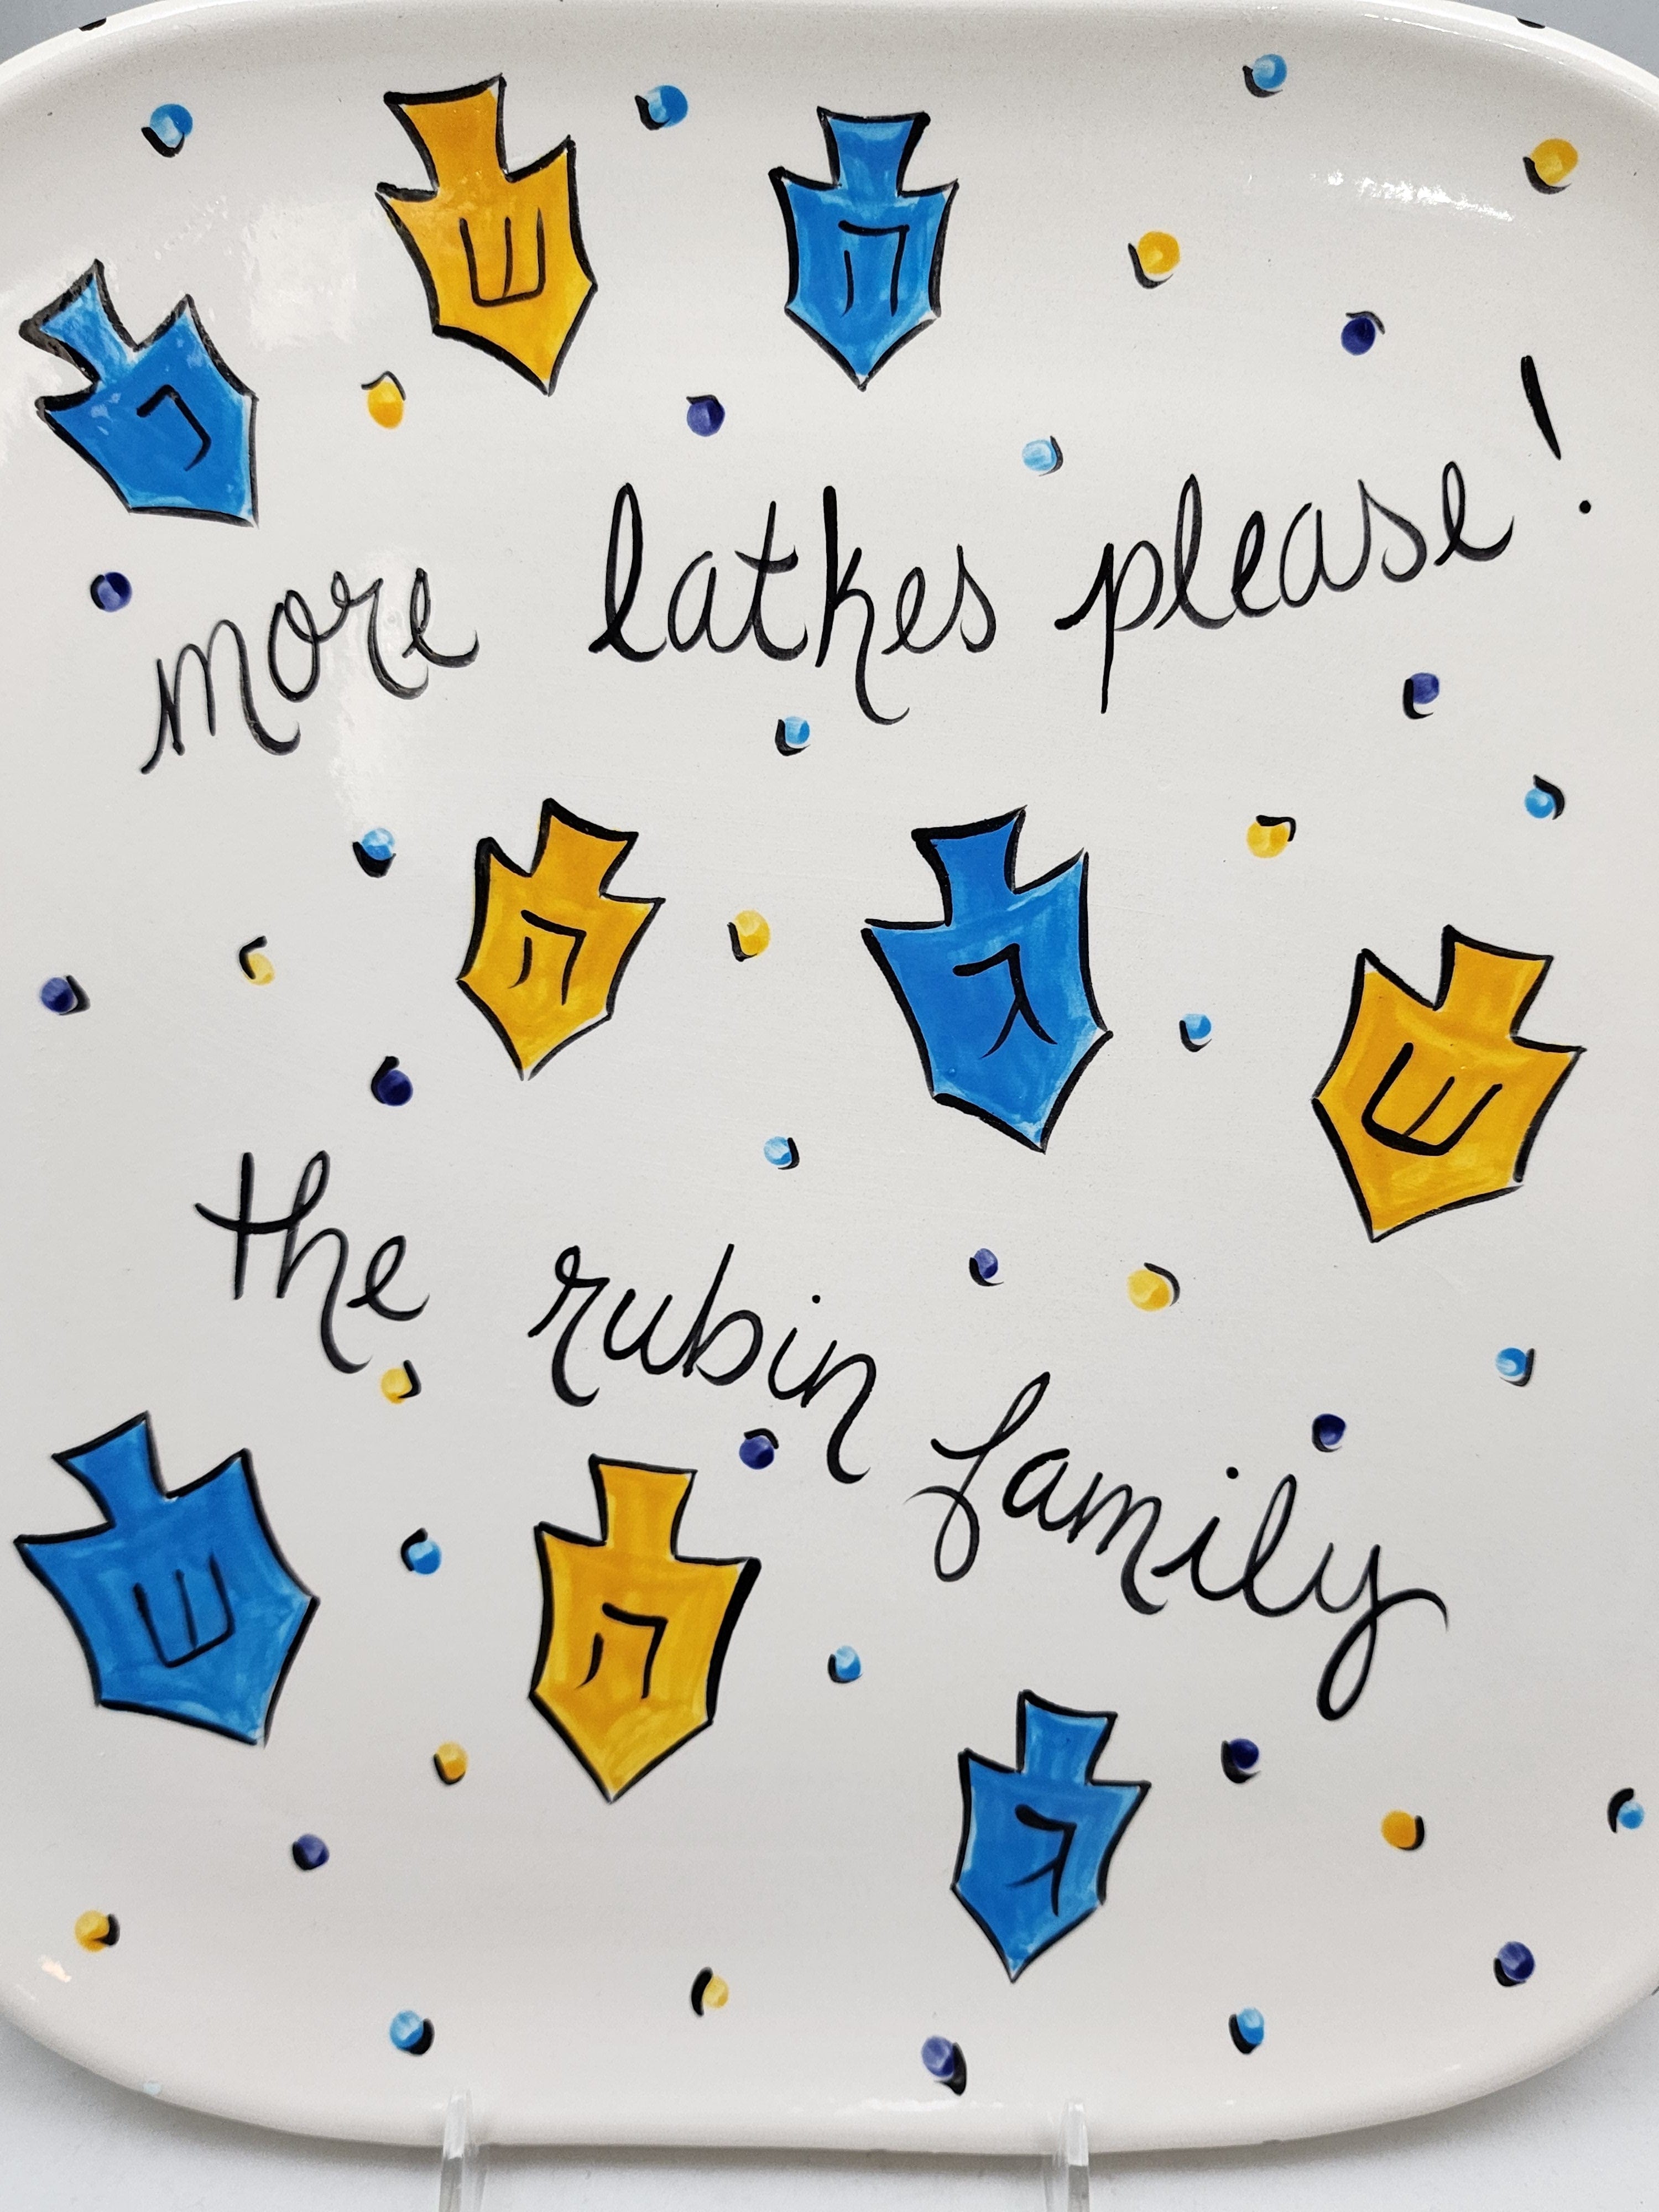 נ
ש
ה
more latkes please!
ה
ג
ש
the rubin family
ש
ה
ג